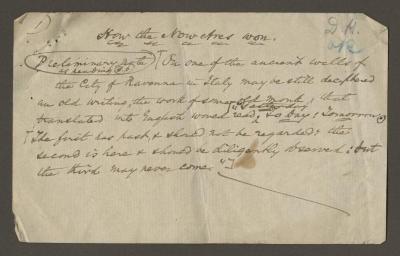 How the Now Ares won.
D. H.
ok
Preliminary note
as heading
On one of the ancient walls of
the City of Ravenna in Italy may be still deciphered
an old writing, the work of some old monk, that
translated into English would read, "Yesterday, to day, tomorrow
The first has past & should not be regarded: the
second is here & should be diligently observed: but
the third may never come."